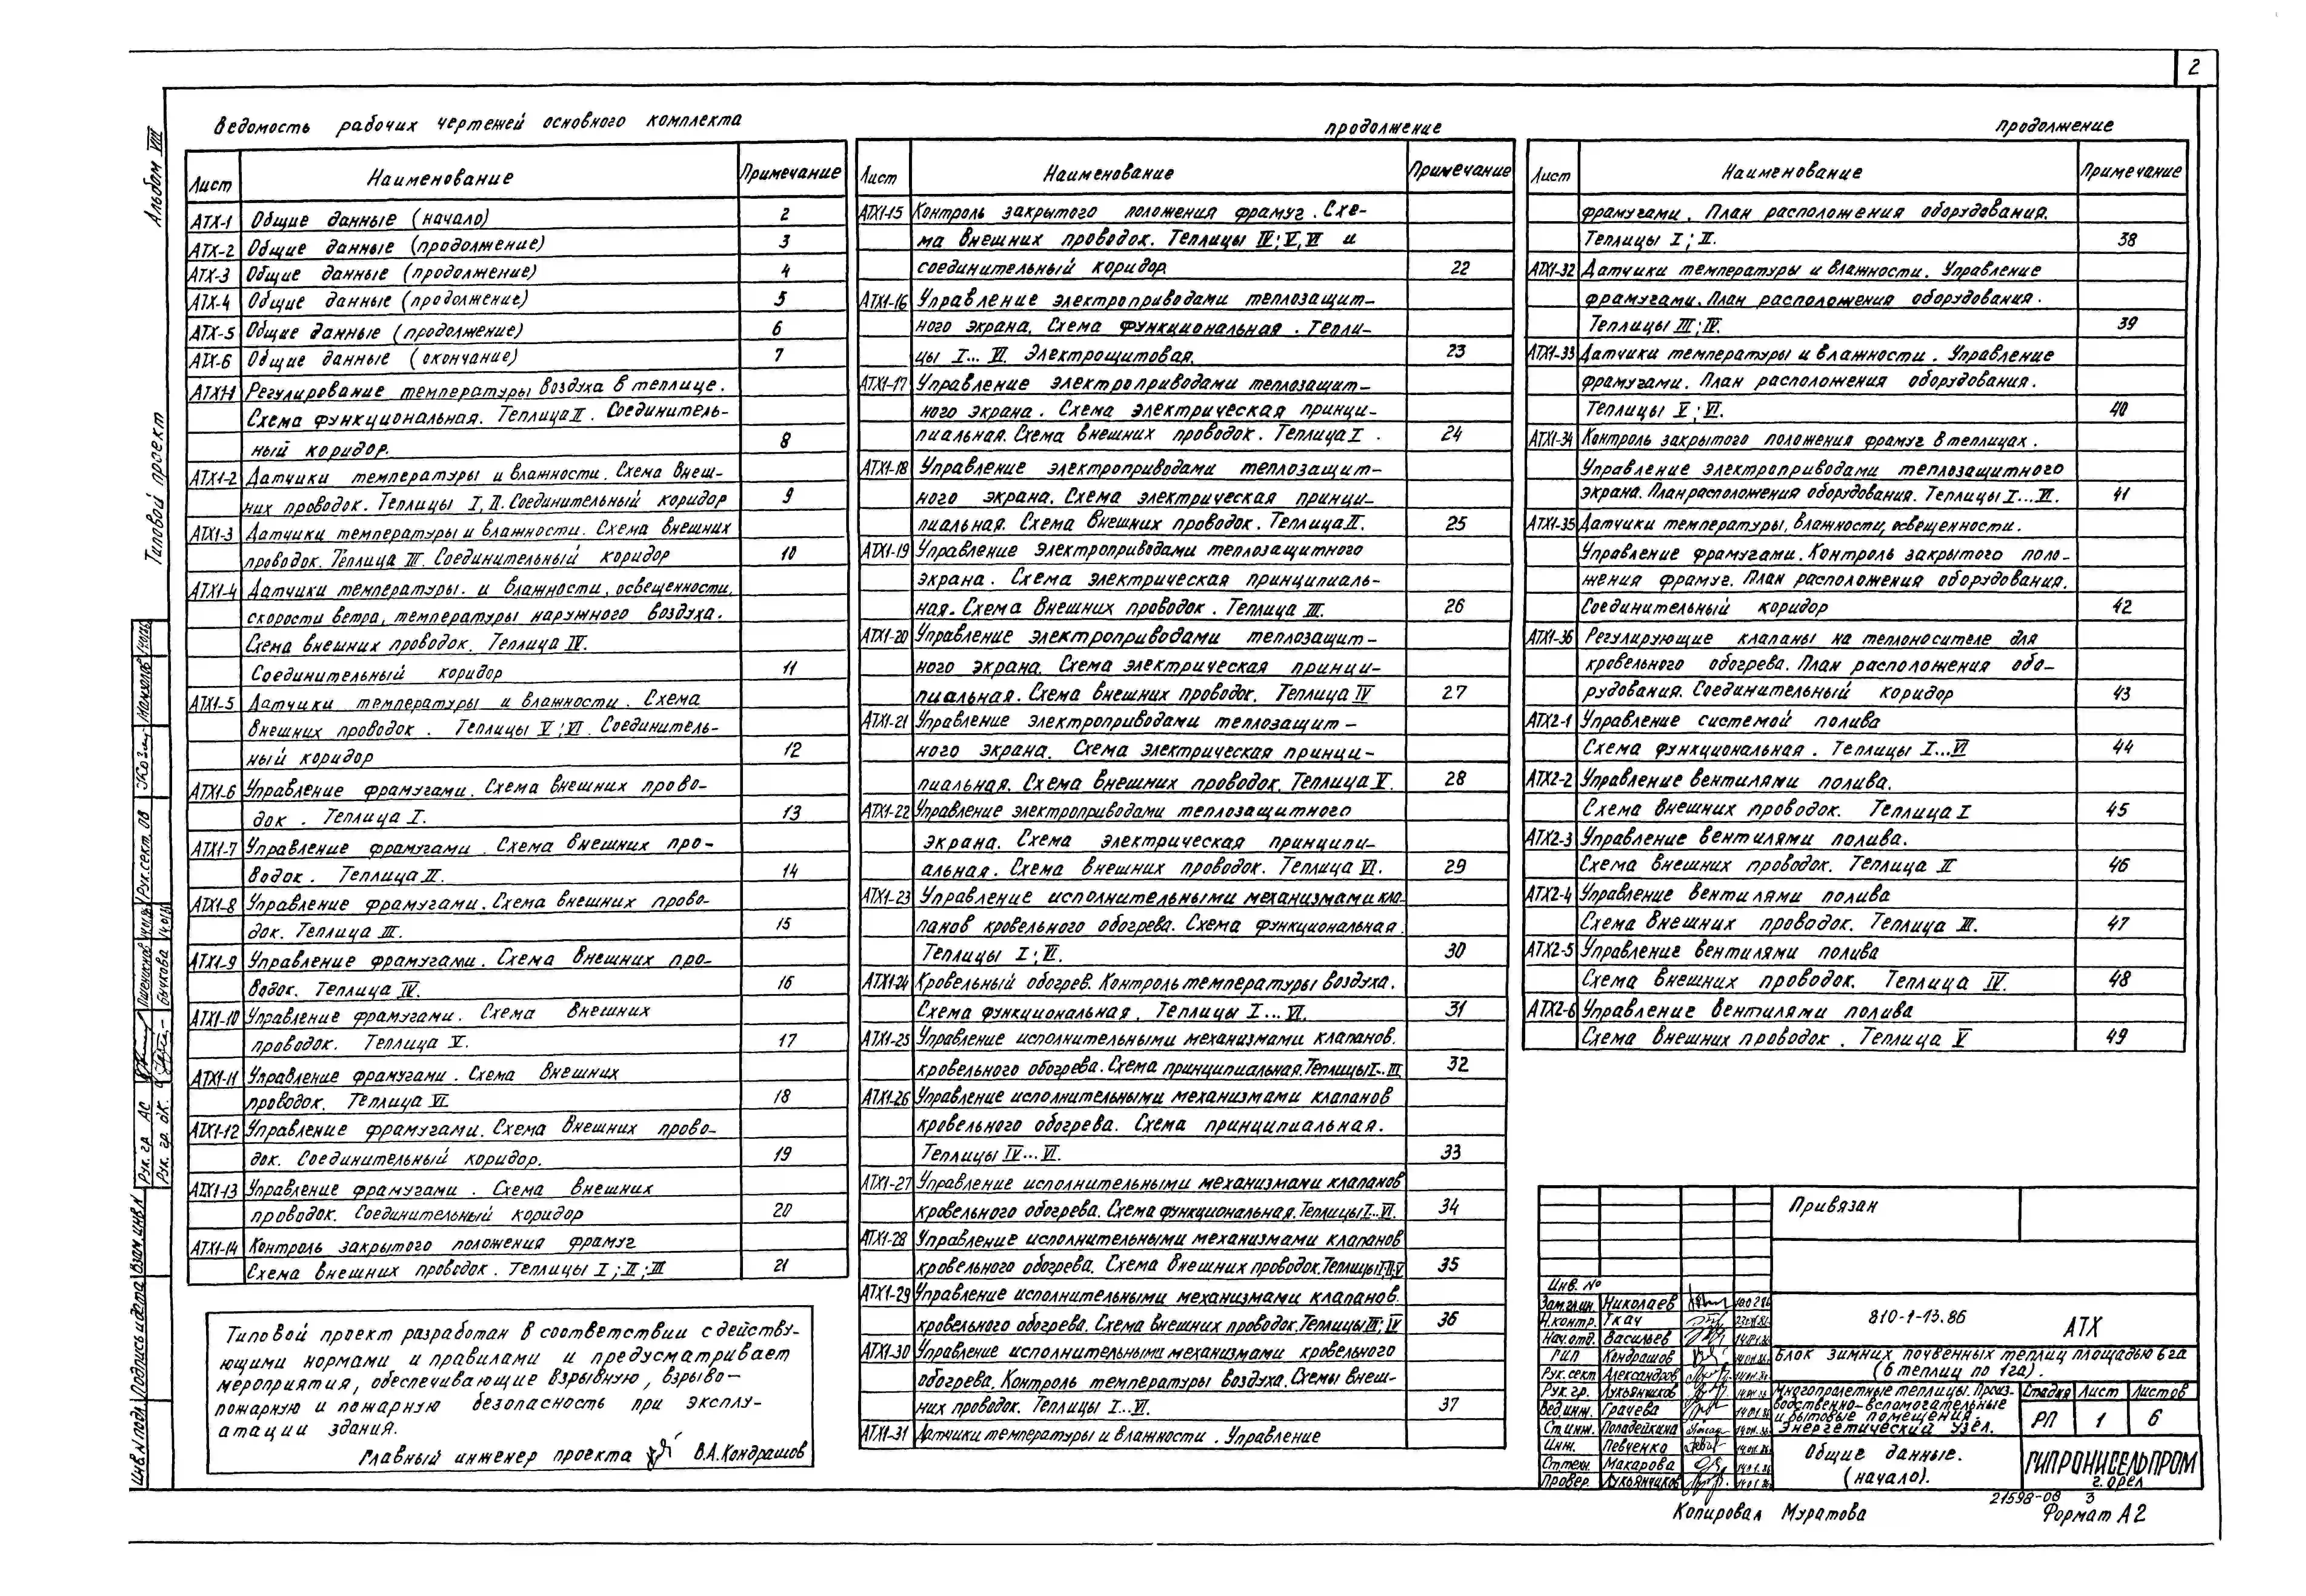 2
Альбом VIII
Типовой проект
Ведомость рабочих чертежей основного комплекта
Лист Наименование Примечание
АТХ-1 Общие данные (начало) 2
АТХ-2 Общие данные (продолжение) 3
АТХ-3 Общие данные (продолжение) 4
АТХ-4 Общие данные (продолжение) 5
АТХ-5 Общие данные (продолжение) 6
АТХ-6 Общие данные (окончание) 7
АТХ1-1 Регулирование температуры воздуха в теплице.
Схема функциональная. Теплица II. Соединитель-
ный коридор. 8
АТХ1-2 Датчики температуры и влажности. Схема внеш-
них проводок. Теплицы I, II. Соединительный коридор 9
АТХ1-3 Датчики температуры и влажности. Схема внешних
проводок. Теплица III. Соединительный коридор 10
АТХ1-4 Датчики температуры. и влажности, освещенности,
скорости ветра, температуры наружного воздуха.
Схема внешних проводок. Теплица IV.
Соединительный коридор 11
АТХ1-5 Датчики температуры и влажности. Схема
внешних проводок. Теплицы V; VI. Соединитель-
ный коридор 12
АТХ1-6 Управление фрамугами. Схема внешних прово-
док. Теплица I. 13
АТХ1-7 Управление фрамугами. Схема внешних про-
водок. Теплица II. 14
АТХ1-8 Управление фрамугами. Схема внешних прово-
док. Теплица III. 15
АТХ1-9 Управление фрамугами. Схема внешних про-
водок. Теплица IV. 16
АТХ1-10 Управление фрамугами. Схема внешних
проводок. Теплица V. 17
АТХ1-11 Управление фрамугами. Схема внешних
проводок. Теплица VI. 18
АТХ1-12 Управление фрамугами. Схема внешних прово-
док. Соединительный коридор. 19
АТХ1-13 Управление фрамугами. Схема внешних
проводок. Соединительный коридор 20
АТХ1-14 Контроль закрытого положения фрамуг
Схема внешних проводок. Теплицы I; II; III 21
Типовой проект разработан в соответствии с действу-
ющими нормами и правилами и предусматривает
мероприятия, обеспечивающие взрывную, взрыво-
пожарную и пожарную безопасность при эксплу-
атации здания.
Главный инженер проекта В.А.Кондрашов
продолжение
Лист Наименование Примечание
АТХ1-15 Контроль закрытого положения фрамуг. Схе-
ма внешних проводок. Теплицы IV; V, VI и
соединительный коридор. 22
АТХ1-16 Управление электроприводами теплозащит-
ного экрана. Схема функциональная. Тепли-
цы I... VI. Электрощитовая. 23
АТХ1-17 Управление электроприводами теплозащит-
ного экрана. Схема электрическая принци-
пиальная. Схема внешних проводок. Теплица I. 24
АТХ1-18 Управление электроприводами теплозащит-
ного экрана. Схема электрическая принци-
пиальная. Схема внешних проводок. Теплица II. 25
АТХ1-19 Управление электроприводами теплозащитного
экрана. Схема электрическая принципиаль-
ная. Схема внешних проводок. Теплица III. 26
АТХ1-20 Управление электроприводами теплозащит-
ного экрана. Схема электрическая принци-
пиальная. Схема внешних проводок. Теплица IV 27
АТХ1-21 Управление электроприводами теплозащит-
ного экрана. Схема электрическая принци-
пиальная. Схема внешних проводок. Теплица V. 28
АТХ1-22 Управление электроприводами теплозащитного
экрана. Схема электрическая принципи-
альная. Схема внешних проводок. Теплица VI. 29
АТХ1-23 Управление исполнительными механизмами кла-
панов кровельного обогрева. Схема функциональная.
Теплицы I; VI. 30
АТХ1-24 Кровельный обогрев. Контроль температуры воздуха.
Схема функциональная. Теплицы I...VI. 31
АТХ1-25 Управление исполнительными механизмами клапанов.
кровельного обогрева. Схема принципиальная. Теплицы I...III 32
АТХ1-26 Управление исполнительными механизмами клапанов
кровельного обогрева. Схема принципиальная.
Теплицы IV...VI. 33
АТХ1-27 Управление исполнительными механизмами клапанов
кровельного обогрева. Схема функциональная. Теплицы I...VI. 34
АТХ1-28 Управление исполнительными механизмами клапанов
кровельного обогрева. Схема внешних проводок. Теплицы 35
АТХ1-29 Управление исполнительными механизмами клапанов.
кровельного обогрева. Схема внешних проводок. Теплицы III; IV 36
АТХ1-30 Управление исполнительными механизмами кровельного
обогрева. Контроль температуры воздуха. Схемы внеш-
них проводок. Теплицы I...VI. 37
АТХ1-31 Датчики температуры и влажности. Управление
продолжение
Лист Наименование Примечание
фрамугами. План расположения оборудования.
Теплицы I; II. 38
АТХ1-32 Датчики температуры и влажности. Управление
фрамугами. План расположения оборудования.
Теплицы III; IV. 39
АТХ1-33 Датчики температуры и влажности. Управление
фрамугами. План расположения оборудования.
Теплицы V; VI. 40
АТХ1-34 Контроль закрытого положения фрамуг в теплицах.
Управление электроприводами теплозащитного
экрана. План расположения оборудования. Теплицы I...VI. 41
АТХ1-35 Датчики температуры, влажности, освещенности.
Управление фрамугами. Контроль закрытого поло-
жения фрамуг. План расположения оборудования.
Соединительный коридор 42
АТХ1-36 Регулирующие клапаны на теплоносителе для
кровельного обогрева. План расположения обо-
рудования. Соединительный коридор 43
АТХ2-1 Управление системой полива
Схема функциональная. Теплицы I...VI 44
АТХ2-2 Управление вентилями полива.
Схема внешних проводок. Теплица I 45
АТХ2-3 Управление вентилями полива.
Схема внешних проводок. Теплица II 46
АТХ2-4 Управление вентилями полива
Схема внешних проводок. Теплица III. 47
АТХ2-5 Управление вентилями полива
Схема внешних проводок. Теплица IV. 48
АТХ2-6 Управление вентилями полива
Схема внешних проводок. Теплица V 49
Привязан
Инв. №
Зам.гл.ин. Николаев
Н.контр. Ткач
Нач.отд. Васильев
ГИП Кондрашов
Рук.сект Александров
Рук.гр. Лукьянчиков
Вед.инж. Грачева
Ст.инж. Попадейкина
Инж. Певченко
Ст.техн. Макарова
Провер. Лукьянчиков
810-1-13.86 АТХ
Блок зимних почвенных теплиц площадью 6га
(6 теплиц по 1га).
Многопролетные теплицы. Произ-
водственно-вспомогательные
и бытовые помещения.
Энергетический узел.
Стадия Лист Листов
РП 1 6
Общие данные.
(начало).
ГИПРОНИСЕЛЬПРОМ
г. Орел
21598-08 3
Копировал Муратова Формат А2
Рук. гр. АС
Рук. гр. ОК
Пшеничнов
Бычкова
Рук.сект. ОВ
Инв.N подл. Подпись и дата Взам.инв.N